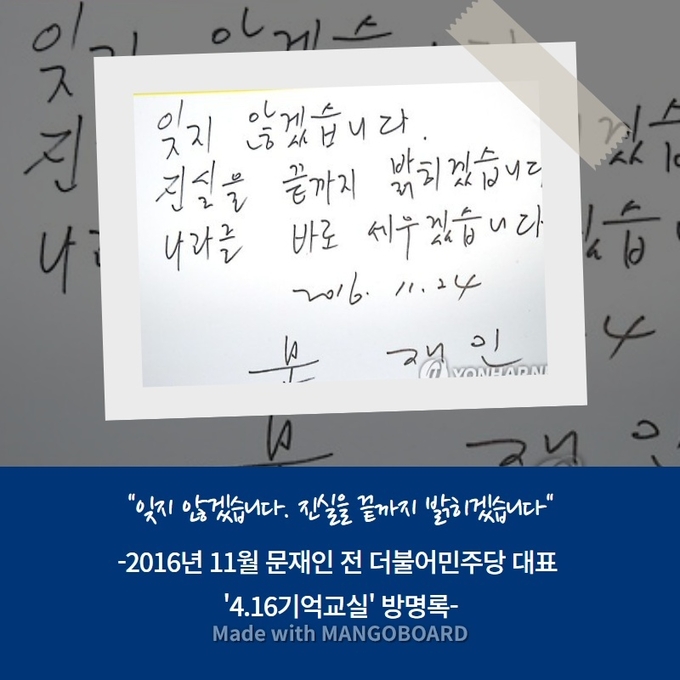 잊지 않겠습니다.
진실을 끝까지 밝히겠습니다
나라를 바로 세우겠습니다
2016. 11. 24
문 재 인
YONHAPN
"잊지 않겠습니다. 진실을 끝까지 밝히겠습니다"
-2016년 11월 문재인 전 더불어민주당 대표
'4.16기억교실' 방명록-
Made with MANGOBOARD